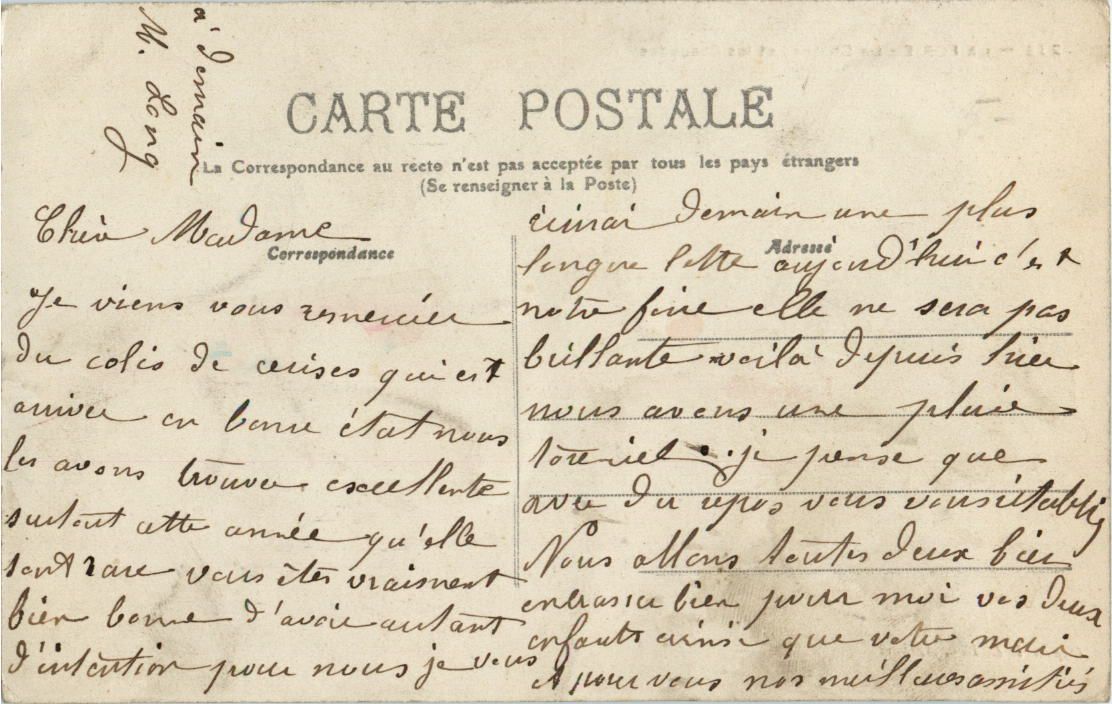 CARTE POSTALE
La Correspondance au recto n'est pas acceptée par tous les pays étrangers
(Se renseigner à la Poste)
Correspondance
Adresse
Chère Madame
Je viens vous remercier
du colis de cerises qui est
arrivee en bonne état nous
les avons trouvee excellente
surtout cette année qu'elle
sont rare vous êtes vraisment
bien bonne d'avoir autant
d'intention pour nous je vous
ecirai demain une plus
longue lette aujourd'hui c'est
notre foire elle ne sera pas
brillante voila depuis hier
nous avons une pluie
toreniel je pense que
avec du repos vous vous rétablis
Nous allons toutes deux bien
embrasser bien pour moi vos deux
enfants ainsi que votre mari
et pour vous nos meilleures amitiés
à demain
M. Long